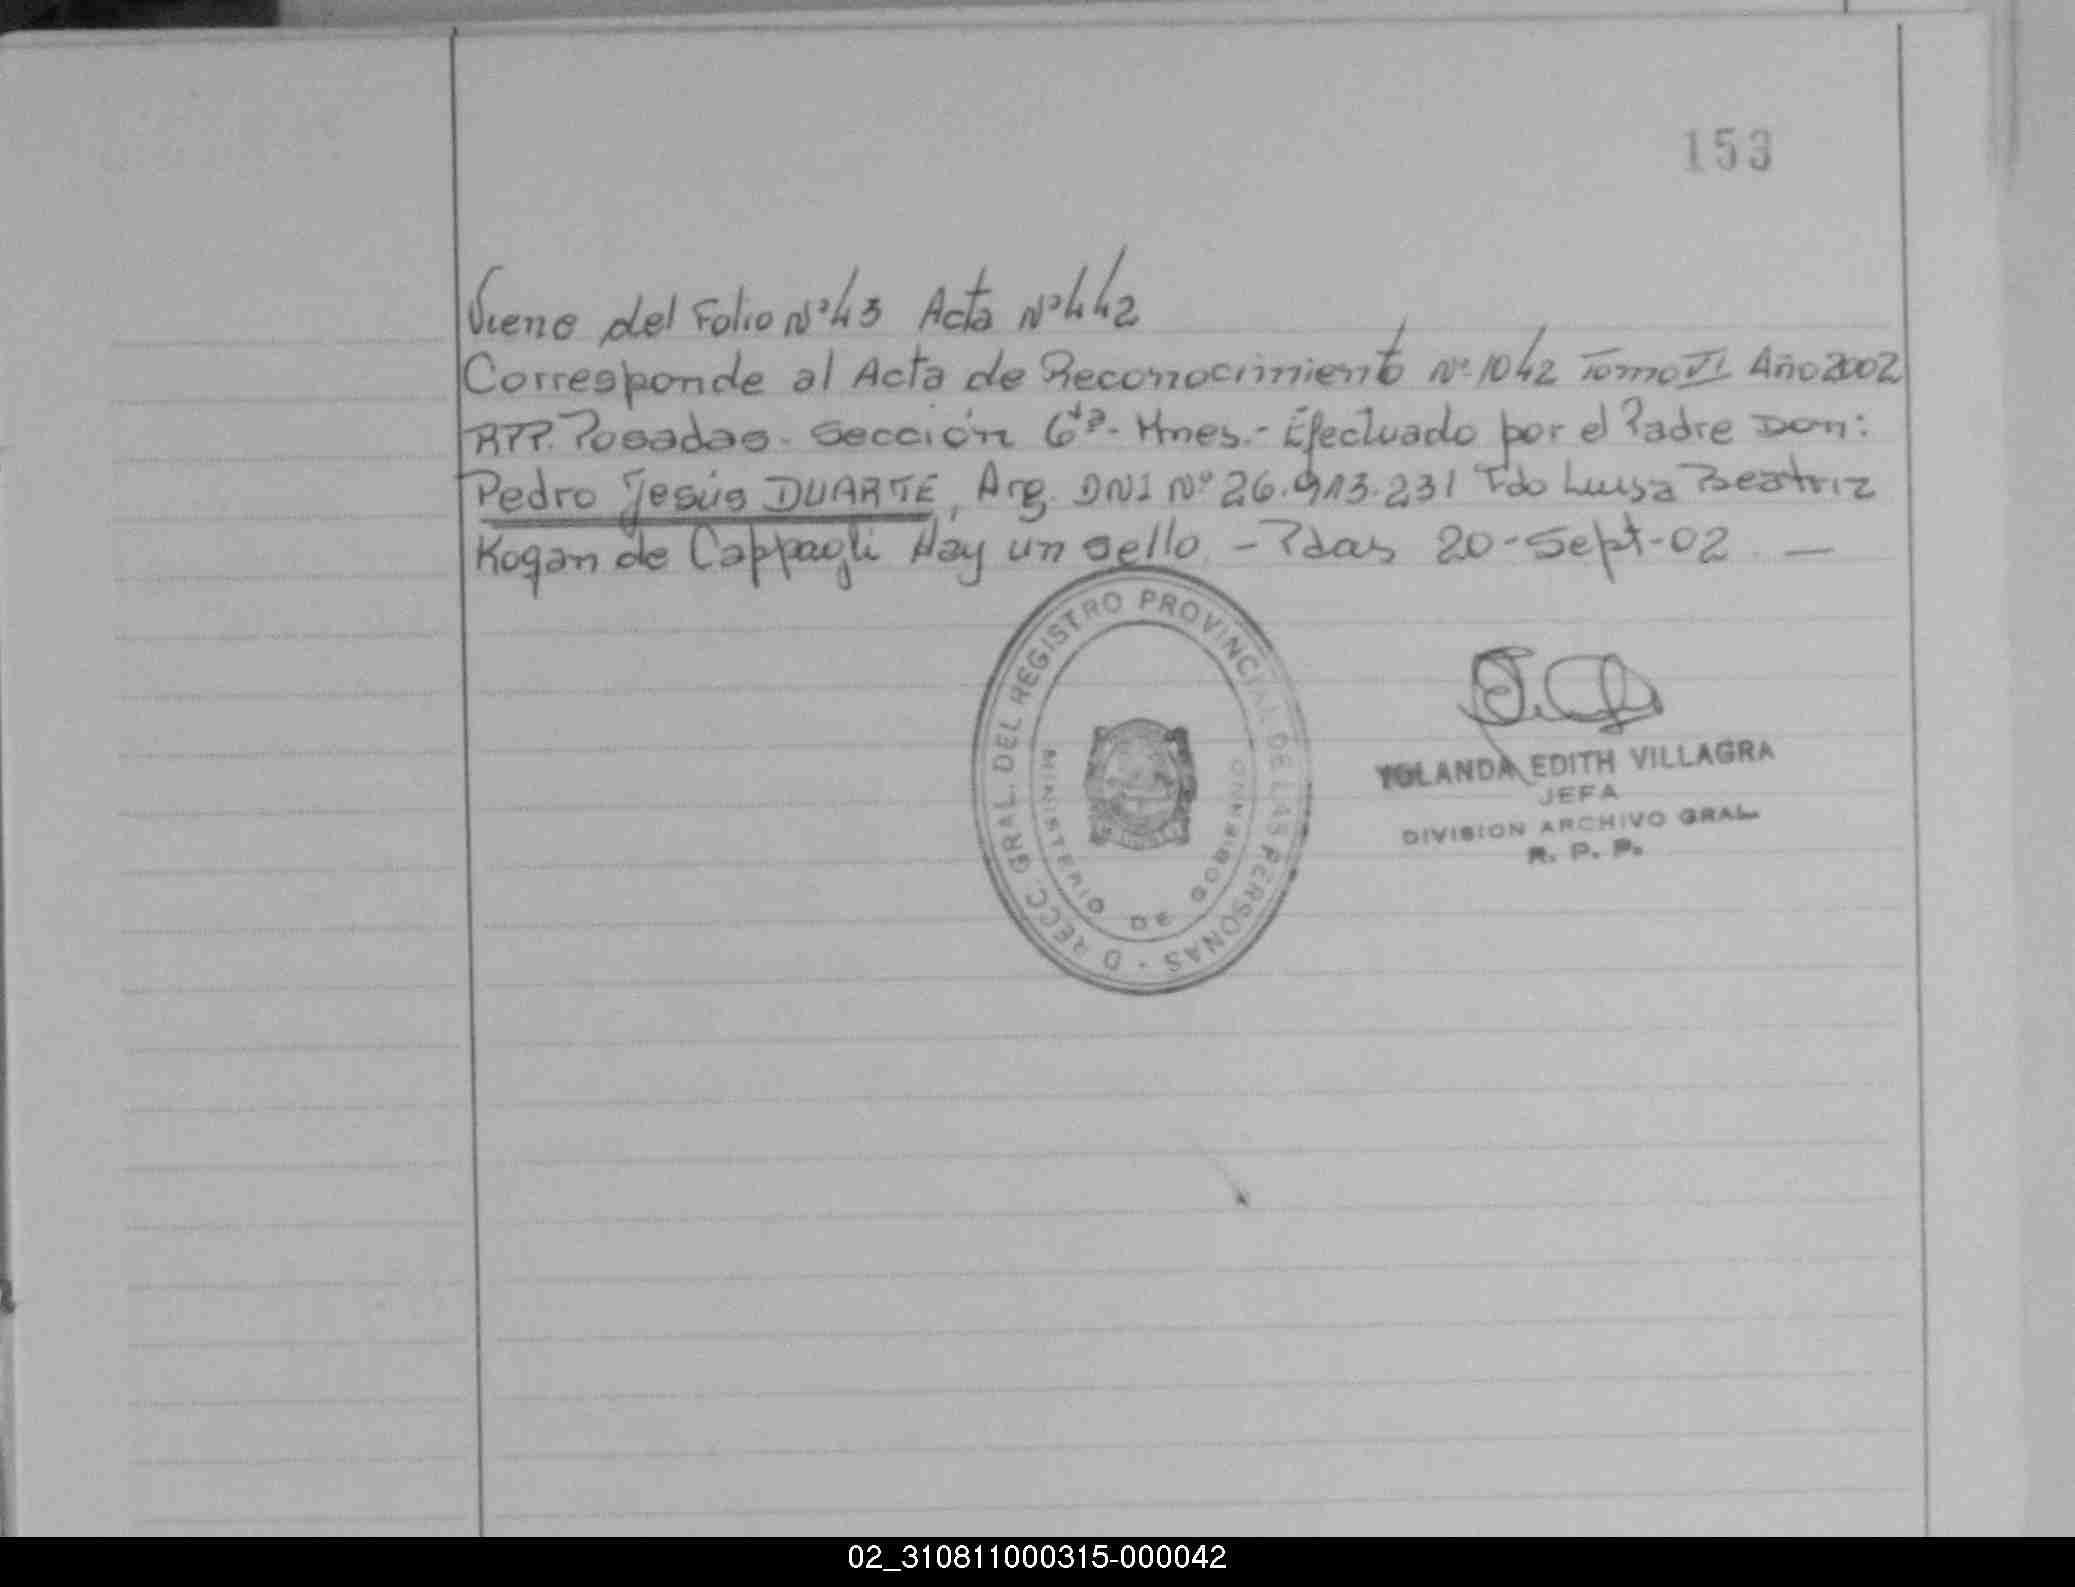 153
Viene del Folio Nº 43 Acta Nº 442
Corresponde al Acta de Reconocimiento Nº 1042 Tomo VI Año 2002
RPP. Posadas. Sección 6ta - Mnes.- Efectuado por el Padre Don:
Pedro Jesús DUARTE, Arg. DNI Nº 26.913.231 Fdo Luisa Beatriz
Kogan de Cappagli Hay un sello - Pdas 20-Sept-02 —
D RECC GRAL. DEL REGISTRO PROVINCIAL DE LAS PERSONAS -
MINISTERIO DE GOBIERNO
YOLANDA EDITH VILLAGRA
JEFA
DIVISION ARCHIVO GRAL.
R. P. P.
02_310811000315-000042